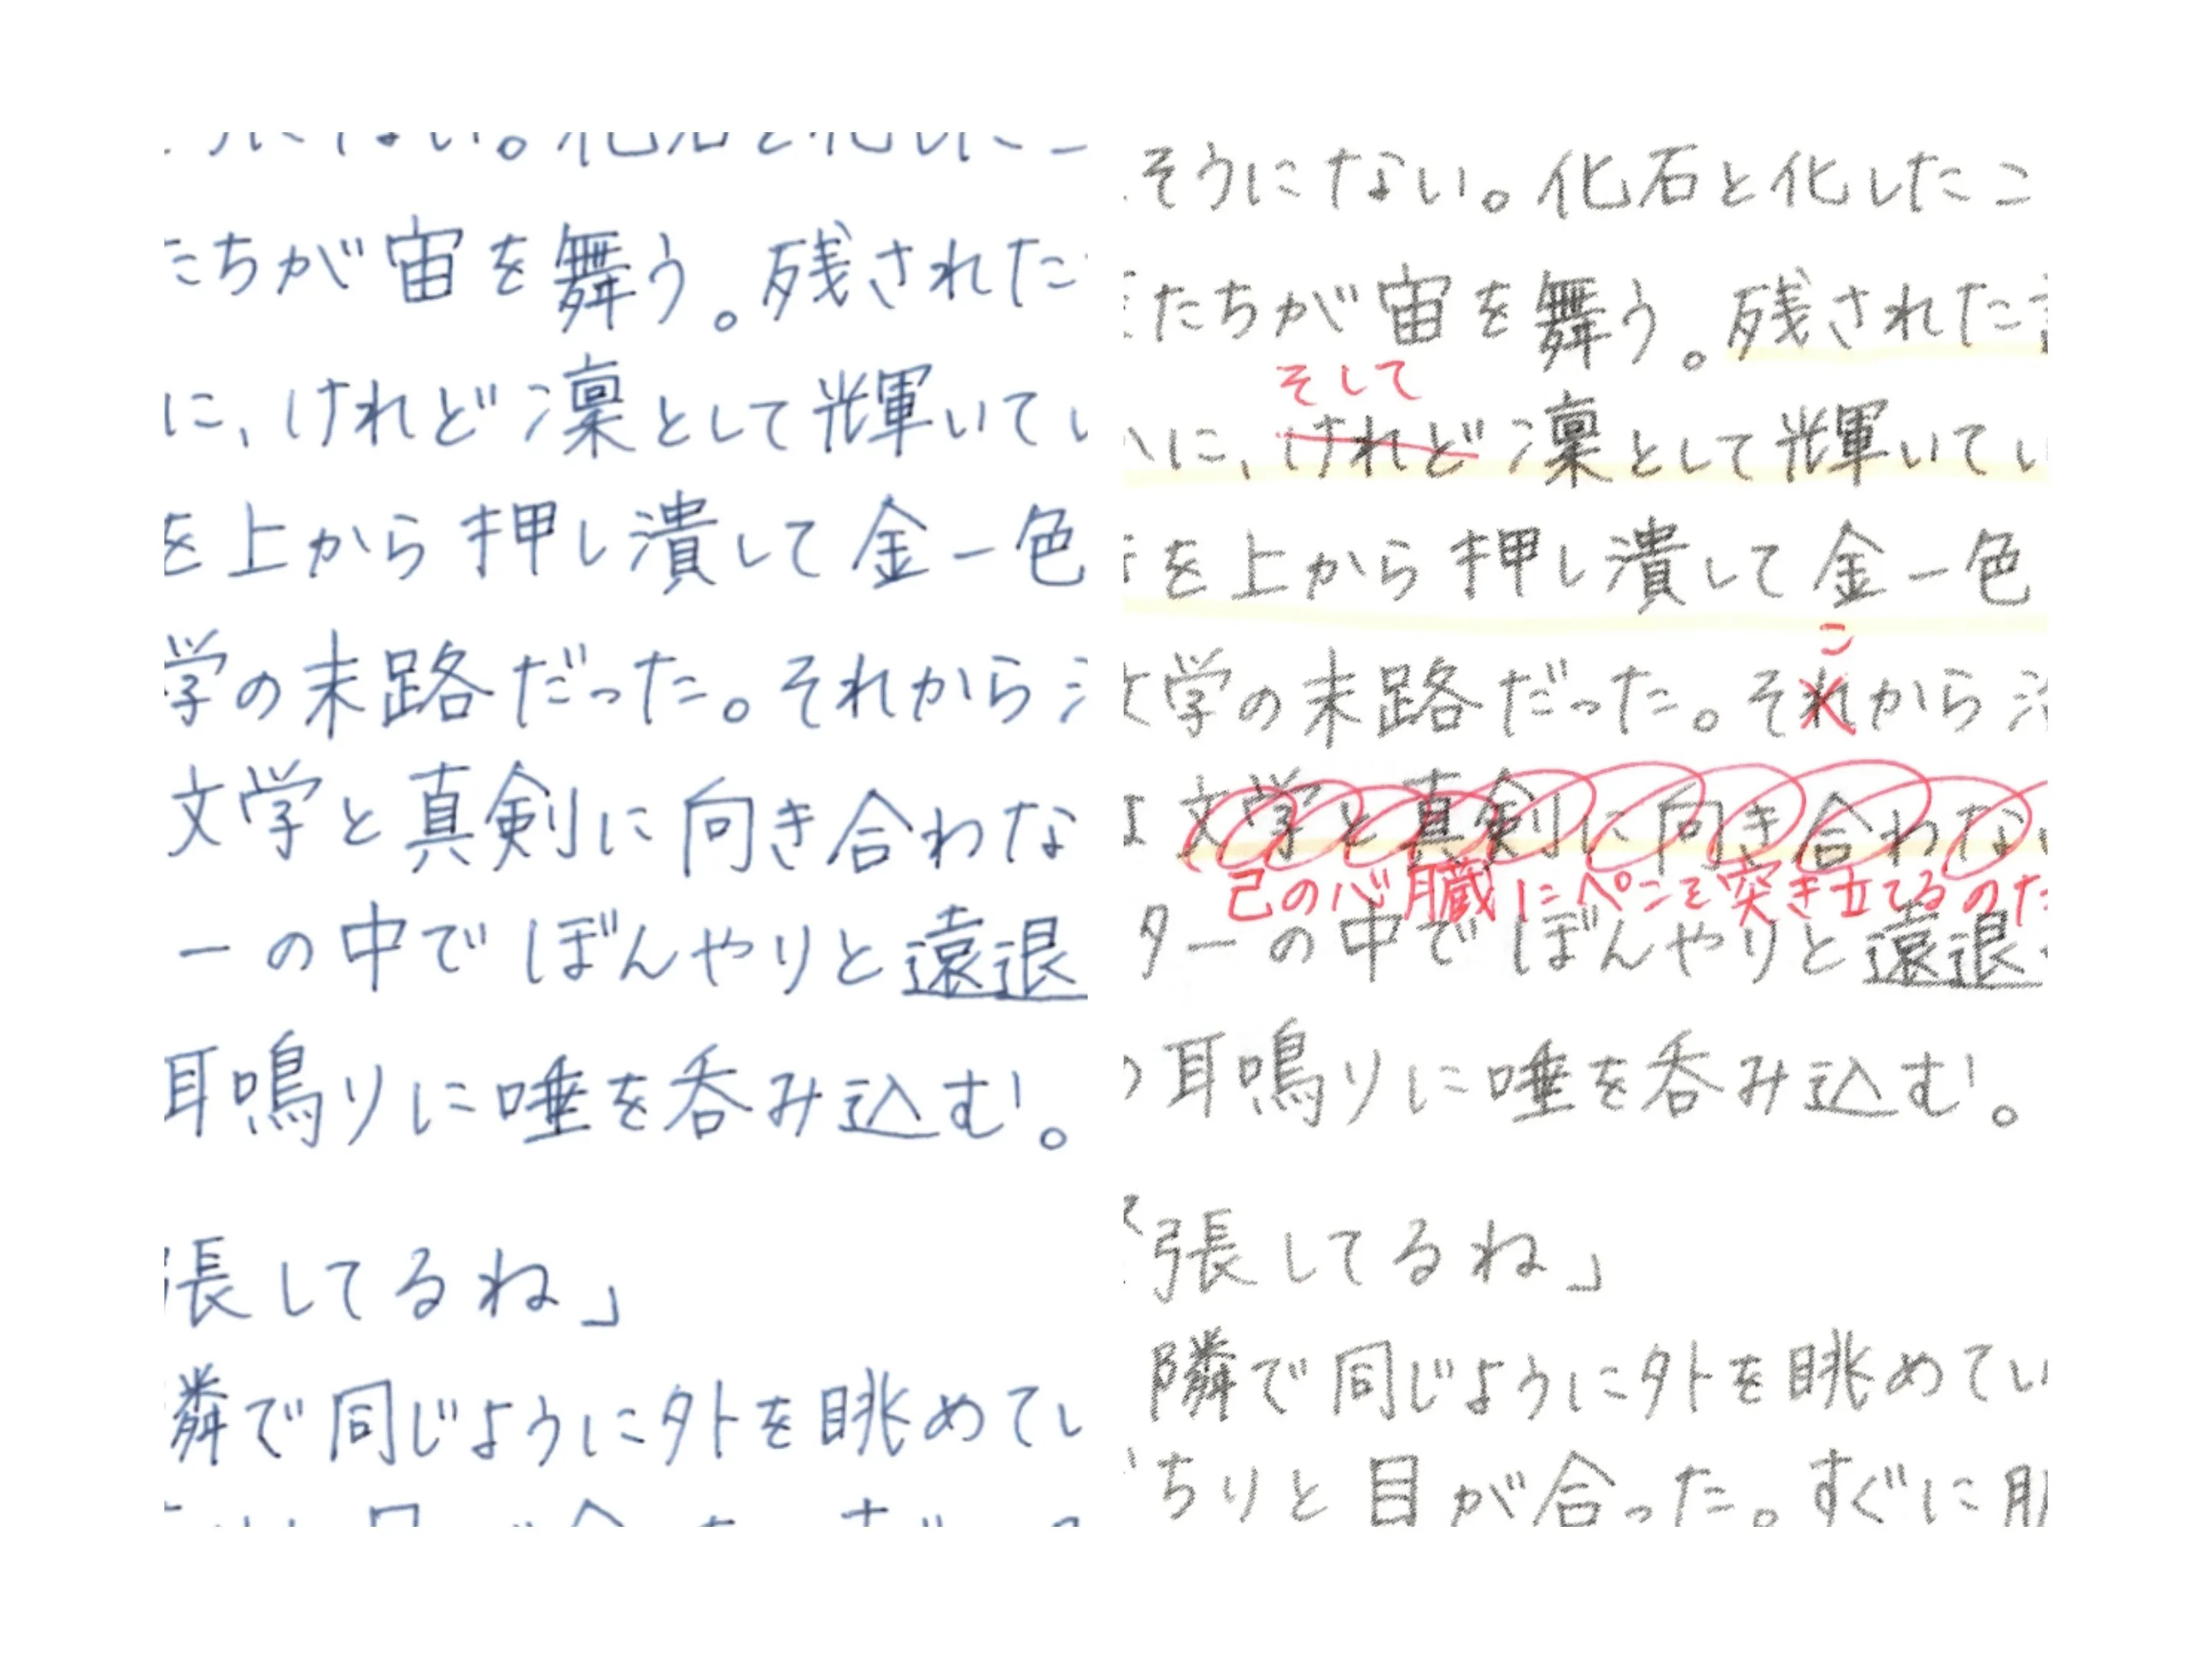 たちが宙を舞う。残された
に、けれど凛として輝いてい
を上から押し潰して金一色
学の末路だった。それから
文学と真剣に向き合わな
ーの中でぼんやりと遠退
耳鳴りに唾を呑み込む。
張してるね」
隣で同じように外を眺めてい
そうにない。化石と化したこ
たちが宙を舞う。残された
そして
に、けれど凛として輝いてい
を上から押し潰して金一色
こ
文学の末路だった。それから
文学と真剣に向き合わない
己の心臓にペンを突き立てるのだ
ターの中でぼんやりと遠退
耳鳴りに唾を呑み込む。
張してるね」
隣で同じように外を眺めてい
ちりと目が合った。すぐに